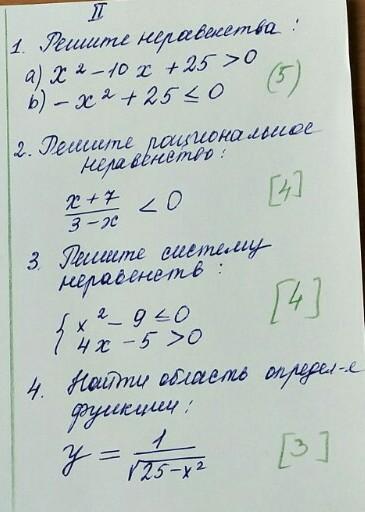 II
1. Решите неравенства:
a) x² - 10x + 25 > 0
b) -x² + 25 ≤ 0
(5)
2. Решите рациональное
неравенство:
x+7
3-x
< 0
[4]
3. Решите систему
неравенств:
{ x² - 9 ≤ 0
4x - 5 > 0
[4]
4. Найти область определ-я
функции:
y = 1
√25-x²
[3]